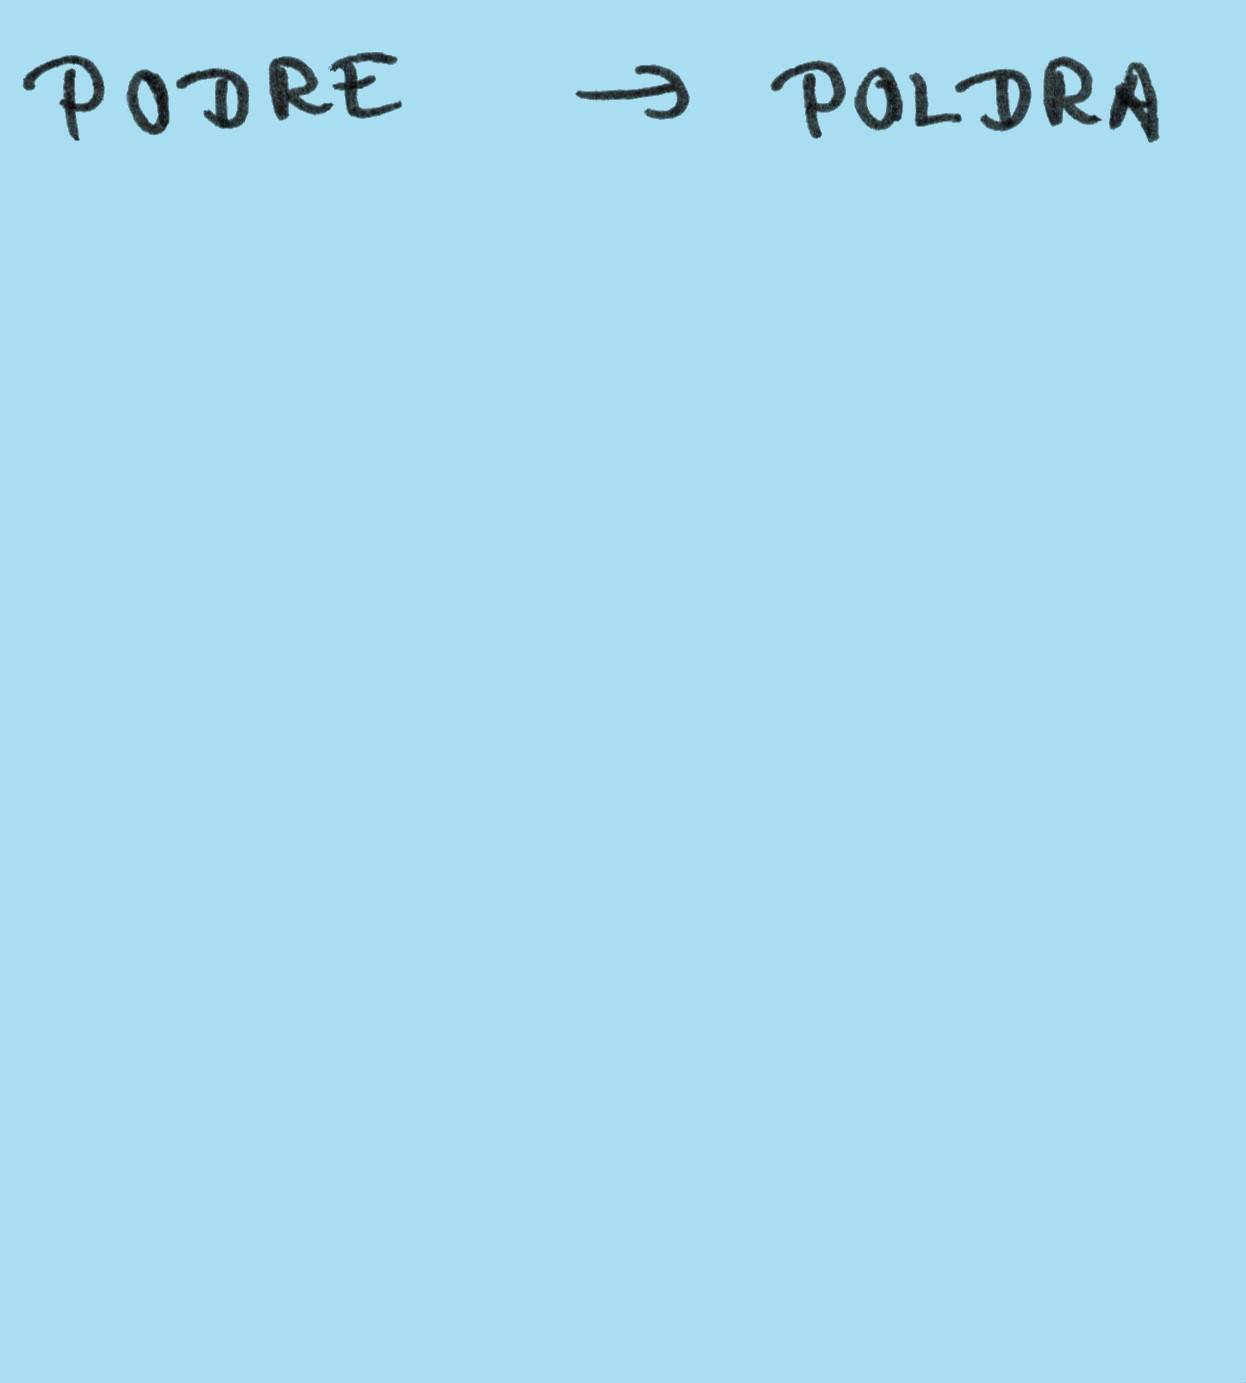 PODRE → POLDRA